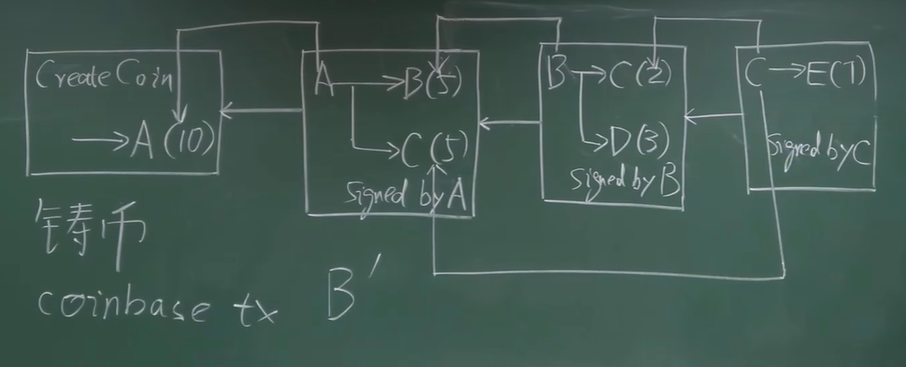 CreateCoin
A(10)
A B(5)
C(5)
signed by A
B C(2)
D(3)
signed by B
C E(7)
signed by C
铸币
coinbase tx B′